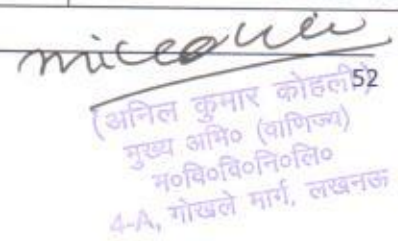 52
(अनिल कुमार कोहली)
मुख्य अभि० (वाणिज्य)
म०वि०वि०नि०लि०
4-A, गोखले मार्ग, लखनऊ